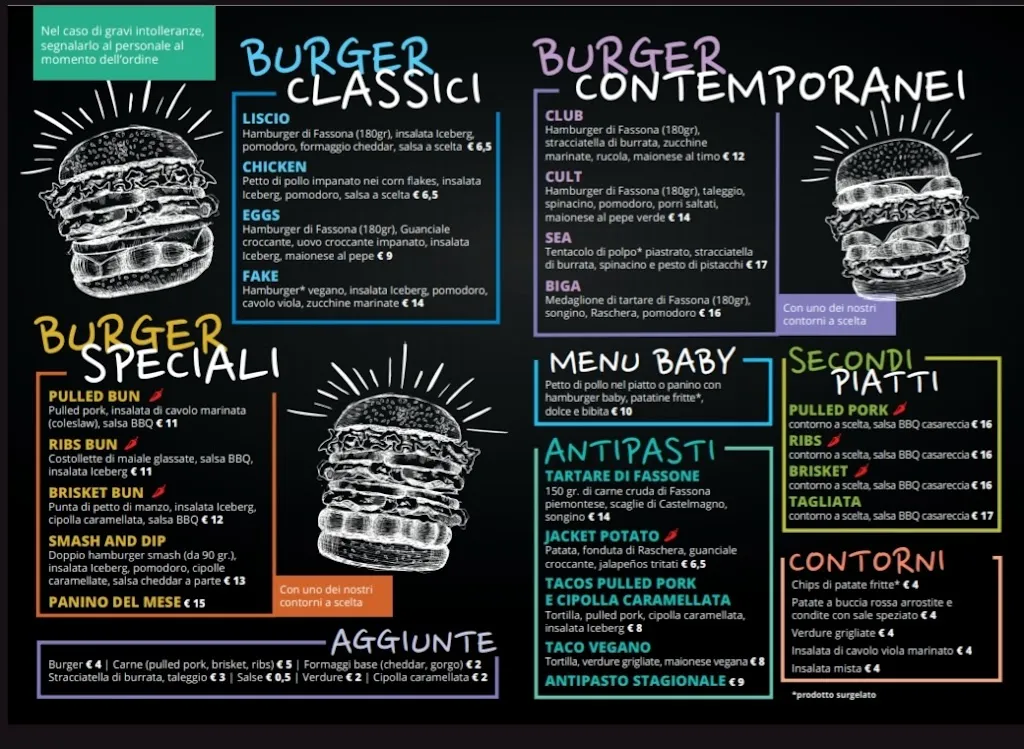 Nel caso di gravi intolleranze,
segnalarlo al personale al
momento dell'ordine
BURGER
CLASSICI
LISCIO
Hamburger di Fassona (180gr), insalata Iceberg,
pomodoro, formaggio cheddar, salsa a scelta € 6,5
CHICKEN
Petto di pollo impanato nei corn flakes, insalata
Iceberg, pomodoro, salsa a scelta € 6,5
EGGS
Hamburger di Fassona (180gr), Guanciale
croccante, uovo croccante impanato, insalata
Iceberg, maionese al pepe € 9
FAKE
Hamburger* vegano, insalata Iceberg, pomodoro,
cavolo viola, zucchine marinate € 14
BURGER
SPECIALI
PULLED BUN
Pulled pork, insalata di cavolo marinata
(coleslaw), salsa BBQ € 11
RIBS BUN
Costollette di maiale glassate, salsa BBQ,
insalata Iceberg € 11
BRISKET BUN
Punta di petto di manzo, insalata Iceberg,
cipolla caramellata, salsa BBQ € 12
SMASH AND DIP
Doppio hamburger smash (da 90 gr.),
insalata Iceberg, pomodoro, cipolle
caramellate, salsa cheddar a parte € 13
PANINO DEL MESE € 15
Con uno dei nostri
contorni a scelta
AGGIUNTE
Burger € 4 | Carne (pulled pork, brisket, ribs) € 5 | Formaggi base (cheddar, gorgo) € 2
Stracciatella di burrata, taleggio € 3 | Salse € 0,5 | Verdure € 2 | Cipolla caramellata € 2
BURGER
CONTEMPORANEI
CLUB
Hamburger di Fassona (180gr),
stracciatella di burrata, zucchine
marinate, rucola, maionese al timo € 12
CULT
Hamburger di Fassona (180gr), taleggio,
spinacino, pomodoro, porri saltati,
maionese al pepe verde € 14
SEA
Tentacolo di polpo* piastrato, stracciatella
di burrata, spinacino e pesto di pistacchi € 17
BIGA
Medaglione di tartare di Fassona (180gr),
songino, Raschera, pomodoro € 16
Con uno dei nostri
contorni a scelta
MENU BABY
Petto di pollo nel piatto o panino con
hamburger baby, patatine fritte*,
dolce e bibita € 10
ANTIPASTI
TARTARE DI FASSONE
150 gr. di carne cruda di Fassona
piemontese, scaglie di Castelmagno,
songino € 14
JACKET POTATO
Patata, fonduta di Raschera, guanciale
croccante, jalapeños tritati € 6,5
TACOS PULLED PORK
E CIPOLLA CARAMELLATA
Tortilla, pulled pork, cipolla caramellata,
insalata Iceberg € 8
TACO VEGANO
Tortilla, verdure grigliate, maionese vegana € 8
ANTIPASTO STAGIONALE € 9
SECONDI
PIATTI
PULLED PORK
contorno a scelta, salsa BBQ casareccia € 16
RIBS
contorno a scelta, salsa BBQ casareccia € 16
BRISKET
contorno a scelta, salsa BBQ casareccia € 16
TAGLIATA
contorno a scelta, salsa BBQ casareccia € 17
CONTORNI
Chips di patate fritte* € 4
Patate a buccia rossa arrostite e
condite con sale speziato € 4
Verdure grigliate € 4
Insalata di cavolo viola marinato € 4
Insalata mista € 4
*prodotto surgelato